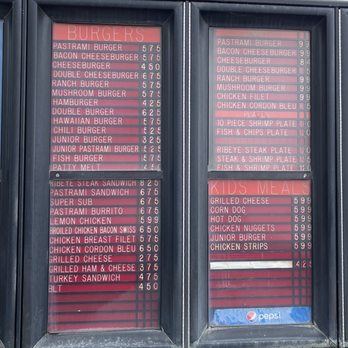 BURGERS
PASTRAMI BURGER 575
BACON CHEESEBURGER 575
CHEESEBURGER 450
DOUBLE CHEESEBURGER 675
RANCH BURGER 575
MUSHROOM BURGER 575
HAMBURGER 425
DOUBLE BURGER 625
HAWAIIAN BURGER 575
CHILI BURGER 525
JUNIOR BURGER 325
JUNIOR PASTRAMI BURGER 425
FISH BURGER 475
PATTY MELT
RIBEYE STEAK SANDWICH 825
PASTRAMI SANDWICH 675
SUPER SUB 675
PASTRAMI BURRITO 675
LEMON CHICKEN 599
BROILED CHICKEN BACON SWISS 650
CHICKEN BREAST FILET 575
CHICKEN CORDON BLEU 650
GRILLED CHEESE 275
GRILLED HAM & CHEESE 375
TURKEY SANDWICH 475
BLT 450
PASTRAMI BURGER
BACON CHEESEBURGER
CHEESEBURGER
DOUBLE CHEESEBURGER
RANCH BURGER
MUSHROOM BURGER
CHICKEN FILET
CHICKEN CORDON BLEU
PLATES
10 PIECE SHRIMP PLATE
FISH & CHIPS PLATE
RIBEYE STEAK PLATE
STEAK & SHRIMP PLATE
FISH & SHRIMP PLATE
KIDS MEALS
GRILLED CHEESE 599
CORN DOG 599
HOT DOG 599
CHICKEN NUGGETS 599
JUNIOR BURGER 599
CHICKEN STRIPS 599
pepsi